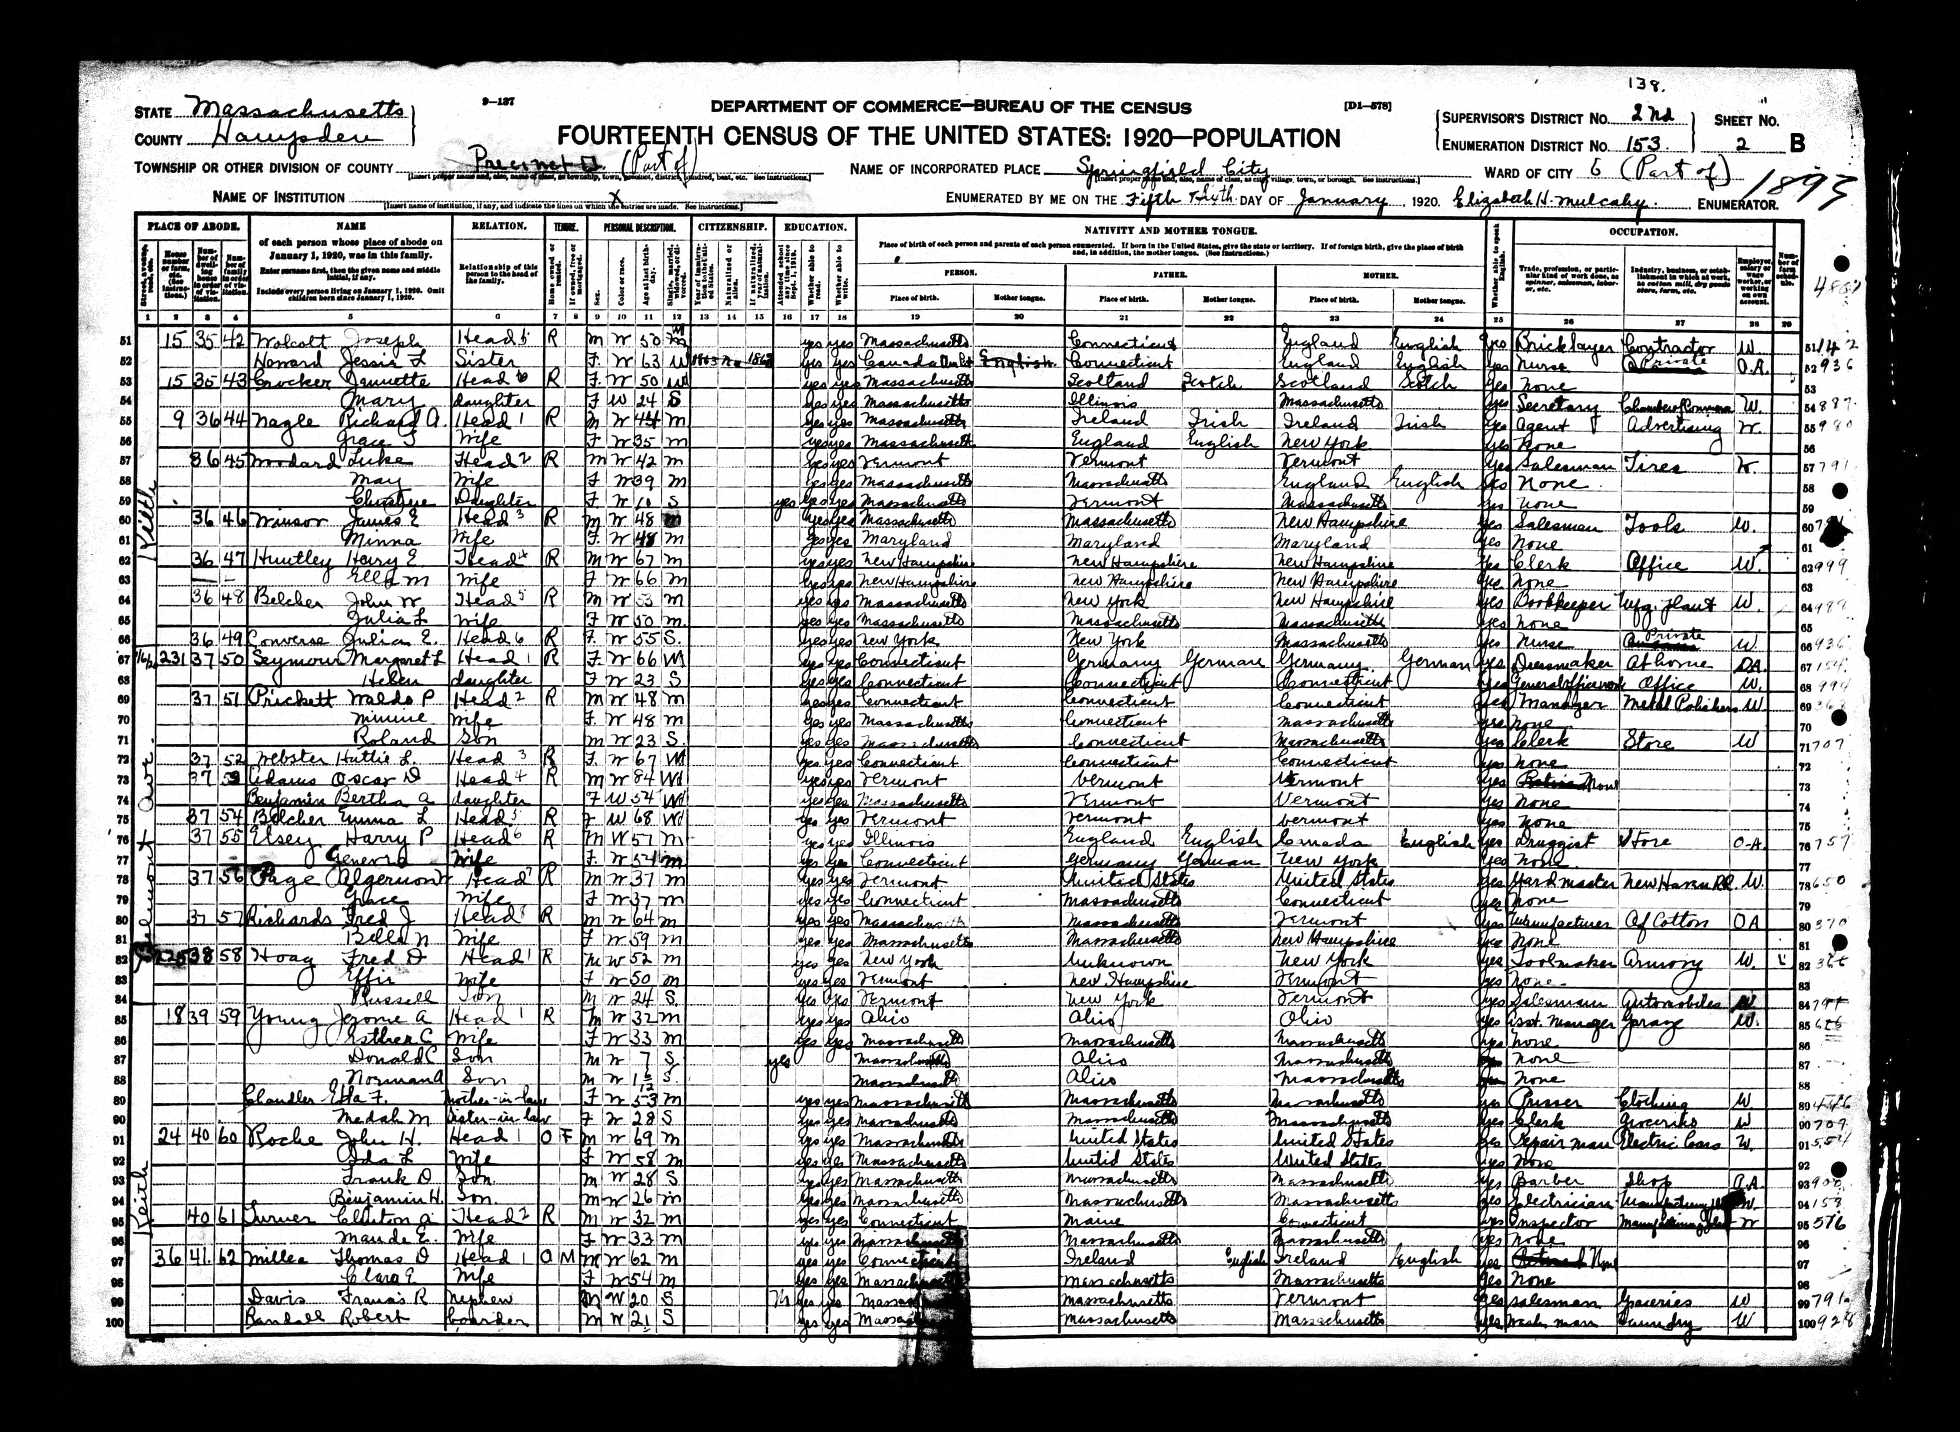 138.
STATE Massachusetts
COUNTY Hampden
9-137
DEPARTMENT OF COMMERCE—BUREAU OF THE CENSUS
[D1-578]
FOURTEENTH CENSUS OF THE UNITED STATES: 1920—POPULATION
SUPERVISOR'S DISTRICT NO. 2nd
ENUMERATION DISTRICT NO. 153
SHEET NO.
2 B
TOWNSHIP OR OTHER DIVISION OF COUNTY Precinct (Part of)
NAME OF INCORPORATED PLACE Springfield City
WARD OF CITY 5 (Part of)
1893
NAME OF INSTITUTION X
[Insert name of institution, if any, and indicate the lines on which the entries are made. See instructions.]
ENUMERATED BY ME ON THE Fifth + Sixth DAY OF January, 1920. Elizabeth H. Mulcahy. ENUMERATOR.
PLACE OF ABODE. NAME RELATION. TENURE. PERSONAL DESCRIPTION. CITIZENSHIP. EDUCATION. NATIVITY AND MOTHER TONGUE. OCCUPATION.
of each person whose place of abode on January 1, 1920, was in this family.
Enter surname first, then the given name and middle initial, if any.
Include every person living on January 1, 1920. Omit children born since January 1, 1920.
Relationship of this person to the head of the family.
Place of birth of each person and parents of each person enumerated. If born in the United States, give the state or territory. If foreign birth, give the place of birth and, in addition, the mother tongue. (See instructions.)
PERSON. FATHER. MOTHER.
Place of birth. Mother tongue. Place of birth. Mother tongue. Place of birth. Mother tongue.
1 2 3 4 5 6 7 8 9 10 11 12 13 14 15 16 17 18 19 20 21 22 23 24 25 26 27 28 29
51 15 35 42 Wolcott Joseph Head R M W 50 yes yes Massachusetts Connecticut England English yes Brick layer Contractor W.
52 Howard Jessie L Sister F W 63 yes yes Canada English Connecticut England English yes Nurse Private O.A. 936
53 15 35 43 Crocker Jannette Head R F W 50 yes yes Massachusetts Scotland Scotch Scotland Scotch yes None
54 Mary daughter F W 24 S yes yes Massachusetts Illinois Massachusetts yes Secretary W. 887
55 9 36 44 Nagle Richard A. Head 1 R M W 44 M yes yes Massachusetts Ireland Irish Ireland Irish yes Agent Advertising W. 980
56 Grace Wife F W 35 M yes yes Massachusetts England English New York yes None
57 36 45 Woodard Luke Head 2 R M W 42 M yes yes Vermont Vermont Vermont yes Salesman Tires W. 791
58 May Wife F W 39 M yes yes Massachusetts Massachusetts England English yes None
59 Daughter F W 10 S yes yes yes Massachusetts Vermont Massachusetts yes None
60 36 46 Winsor James E Head 3 R M W 48 M yes yes Massachusetts Massachusetts New Hampshire yes Salesman Tools W.
61 Minna Wife F W 48 M yes yes Maryland Maryland Maryland yes None
62 36 47 Huntley Harry E Head 4 R M W 67 M yes yes New Hampshire New Hampshire New Hampshire yes Clerk Office W. 999
63 Ella M Wife F W 66 M yes yes New Hampshire New Hampshire New Hampshire yes None
64 36 48 Belcher John W Head 5 R M W 53 M yes yes Massachusetts New York New Hampshire yes Bookkeeper Mfg. Plant W.
65 Julia L Wife F W 50 M yes yes Massachusetts Massachusetts Massachusetts yes None
66 36 49 Converse Julia E. Head 6 R F W 55 S. yes yes New York New York Massachusetts yes Nurse Private W 936
67 231 37 50 Seymour Margaret L Head 1 R F W 66 Wd yes yes Connecticut Germany German Germany German yes Dressmaker At home OA.
68 Helen daughter F W 23 S yes yes Connecticut Connecticut Connecticut yes General office work Office W. 994
69 37 51 Prickett Waldo P Head 2 R M W 48 M yes yes Connecticut Connecticut Connecticut yes Manager Metal Polishers W.
70 Minnie Wife F W 48 M yes yes Massachusetts Connecticut Massachusetts yes None
71 Roland Son M W 23 S yes yes Massachusetts Connecticut Massachusetts yes Clerk Store W 707
72 37 52 Webster Hattie L. Head 3 R F W 67 Wd yes yes Connecticut Connecticut Connecticut yes None
73 37 53 Adams Oscar D Head 4 R M W 84 Wd yes yes Vermont Vermont Vermont yes None
74 Benjamin Bertha A daughter F W 54 Wd yes yes Massachusetts Vermont Vermont yes None
75 37 54 Belcher Emma L Head 5 R F W 68 Wd yes yes Vermont Vermont Vermont yes None
76 37 55 Elsey Harry P Head 6 R M W 57 M yes yes Illinois England English Canada English yes Druggist Store O.A. 757
77 Geneva Wife F W 54 M yes yes Connecticut Germany German New York yes None
78 37 56 Page Algernon Head 7 R M W 37 M yes yes Vermont United States United States yes Yard master New Haven RR. W. 650
79 Grace Wife F W 37 M yes yes Connecticut Massachusetts Connecticut yes None
80 37 57 Richards Fred J Head 8 R M W 64 M yes yes Massachusetts Massachusetts Vermont yes Manufacturer Of Cotton OA 370
81 Bella N Wife F W 59 M yes yes Massachusetts Massachusetts New Hampshire yes None
82 225 38 58 Hoag Fred D Head 1 R M W 52 M yes yes New York Unknown New York yes Toolmaker Armory W.
83 Effie Wife F W 50 M yes yes Vermont New Hampshire Vermont yes None
84 Russell Son M W 24 S yes yes Vermont New York Vermont yes Salesman Automobiles W
85 18 39 59 Young Jerome A Head 1 R M W 32 M yes yes Ohio Ohio Ohio yes Asst. Manager Garage W.
86 Esther C Wife F W 33 M yes yes Massachusetts Massachusetts Massachusetts yes None
87 Donald C Son M W 7 S yes Massachusetts Ohio Massachusetts None
88 Norman A Son M W S. Massachusetts Ohio Massachusetts None
89 Chandler Etta F. Mother-in-law F W 53 M yes yes Massachusetts Massachusetts Massachusetts yes Presser Clothing W.
90 Medah M Sister-in-law F W 28 S yes yes Massachusetts Massachusetts Massachusetts yes Clerk Groceries W 709
91 24 40 60 Roche John H. Head 1 O F M W 69 M yes yes Massachusetts United States United States yes Repair man Electric Cars W.
92 Ada L Wife F W 58 M yes yes Massachusetts United States United States yes None
93 Frank D Son M W 28 S yes yes Massachusetts Massachusetts Massachusetts yes Barber Shop O.A.
94 Benjamin H. Son M W 26 M yes yes Massachusetts Massachusetts Massachusetts yes Electrician W.
95 40 61 Turner Clinton A Head 2 R M W 32 M yes yes Connecticut Maine Connecticut yes Inspector W 576
96 Maude E. Wife F W 33 M yes yes Massachusetts Massachusetts Massachusetts yes None
97 36 41 62 Millea Thomas D Head 1 O M M W 62 M yes yes Connecticut Ireland English Ireland English yes None
98 Clara E Wife F W 54 M yes yes Massachusetts Massachusetts Massachusetts yes None
99 Davis Francis R nephew M W 20 S No yes yes Massachusetts Vermont yes Salesman Groceries W 791
100 Randall Robert boarder M W 21 S yes yes Massachusetts Massachusetts yes Wash man Laundry W 928
Belmont Ave.
Keith